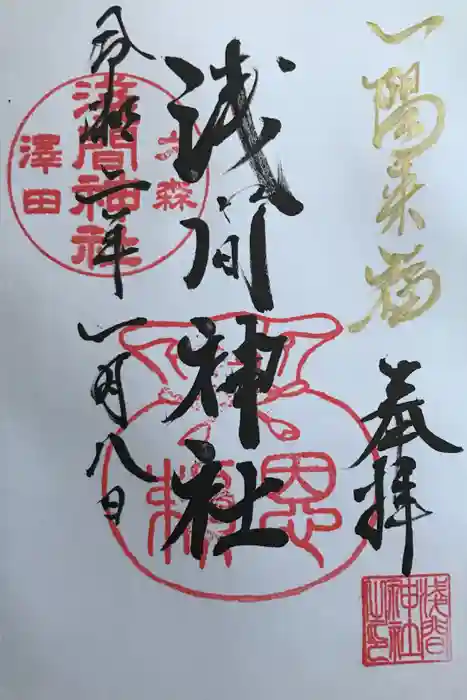 一陽来福
奉拝
浅間神社
令和二年
一月八日
大森
浅間神社
澤田
浅間
神社